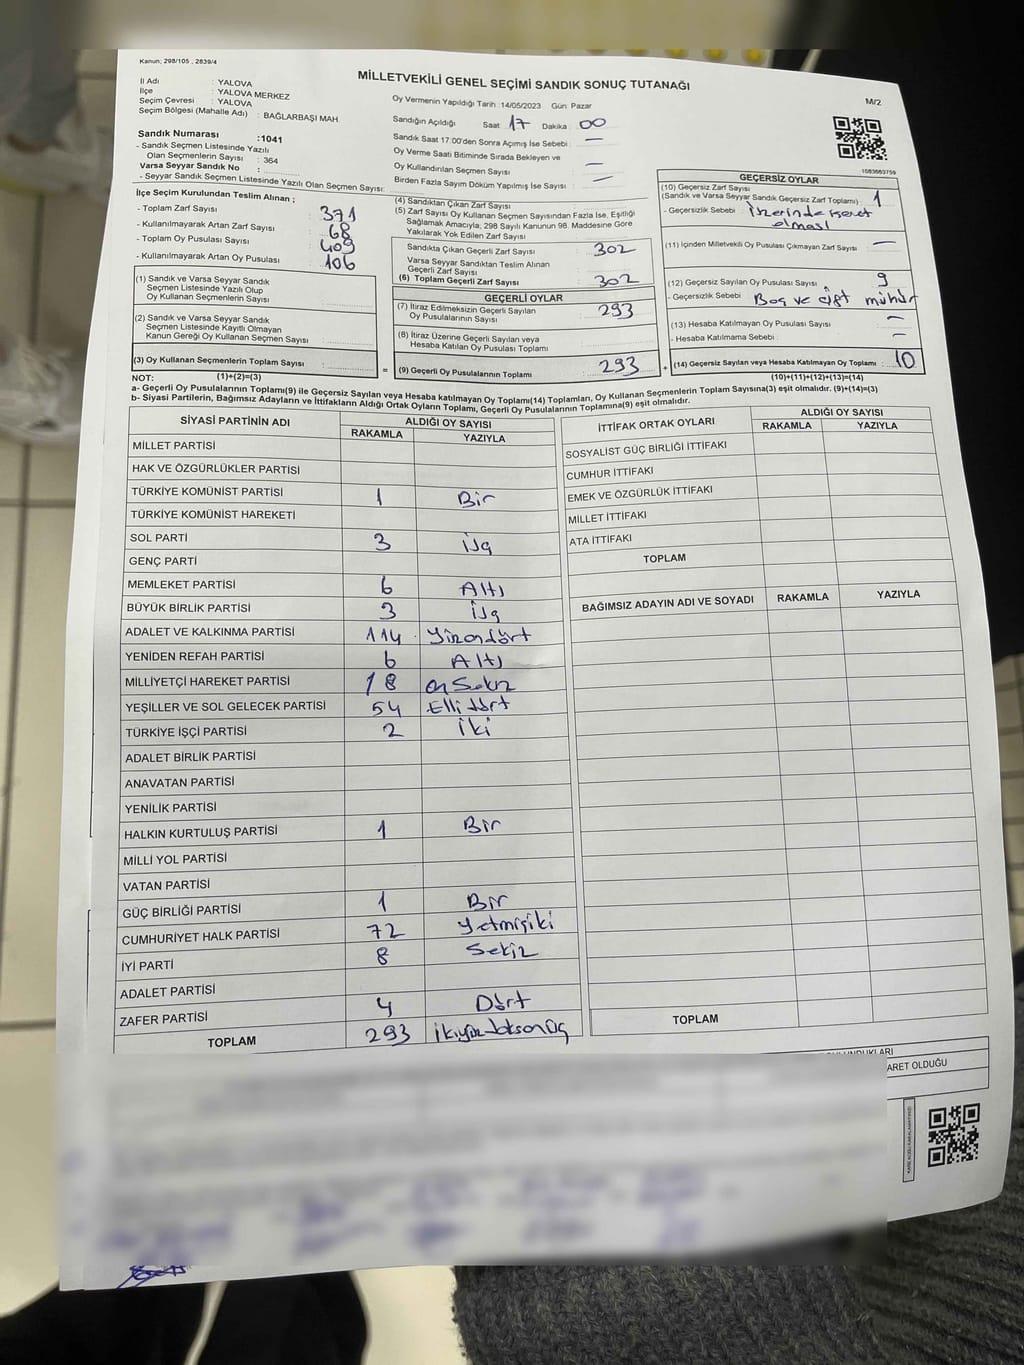 Kanun; 298/105 , 2839/4
MİLLETVEKİLİ GENEL SEÇİMİ SANDIK SONUÇ TUTANAĞI
M/2
İl Adı : YALOVA
İlçe : YALOVA MERKEZ
Seçim Çevresi : YALOVA
Seçim Bölgesi (Mahalle Adı) : BAĞLARBAŞI MAH
Sandık Numarası :1041
- Sandık Seçmen Listesinde Yazılı
Olan Seçmenlerin Sayısı : 364
Varsa Seyyar Sandık No :
- Seyyar Sandık Seçmen Listesinde Yazılı Olan Seçmen Sayısı:
Oy Vermenin Yapıldığı Tarih :14/05/2023 Gün: Pazar
Sandığın Açıldığı Saat 17 Dakika : 00
Sandık Saat 17:00'den Sonra Açımış İse Sebebi : —
Oy Verme Saati Bitiminde Sırada Bekleyen ve
Oy Kullandırılan Seçmen Sayısı : —
Birden Fazla Sayım Döküm Yapılmış İse Sayısı : —
İlçe Seçim Kurulundan Teslim Alınan ;
- Toplam Zarf Sayısı : 371
- Kullanılmayarak Artan Zarf Sayısı : 68
- Toplam Oy Pusulası Sayısı : 409
- Kullanılmayarak Artan Oy Pusulası : 106
(1) Sandık ve Varsa Seyyar Sandık
Seçmen Listesinde Yazılı Olup
Oy Kullanan Seçmenlerin Sayısı :
(2) Sandık ve Varsa Seyyar Sandık
Seçmen Listesinde Kayıtlı Olmayan
Kanun Gereği Oy Kullanan Seçmen Sayısı :
(3) Oy Kullanan Seçmenlerin Toplam Sayısı :
(1)+(2)=(3)
(4) Sandıktan Çıkan Zarf Sayısı :
(5) Zarf Sayısı Oy Kullanan Seçmen Sayısından Fazla İse, Eşitliği
Sağlamak Amacıyla, 298 Sayılı Kanunun 98. Maddesine Göre
Yakılarak Yok Edilen Zarf Sayısı :
Sandıkta Çıkan Geçerli Zarf Sayısı : 302
Varsa Seyyar Sandıktan Teslim Alınan
Geçerli Zarf Sayısı :
(6) Toplam Geçerli Zarf Sayısı : 302
GEÇERLİ OYLAR
(7) İtiraz Edilmeksizin Geçerli Sayılan
Oy Pusulalarının Sayısı : 293
(8) İtiraz Üzerine Geçerli Sayılan veya
Hesaba Katılan Oy Pusulası Toplamı :
= (9) Geçerli Oy Pusulalarının Toplamı : 293
1083683759
GEÇERSİZ OYLAR
(10) Geçersiz Zarf Sayısı
(Sandık ve Varsa Seyyar Sandık Geçersiz Zarf Toplamı) : 1
- Geçersizlik Sebebi : üzerinde işaret
olması
(11) İçinden Milletvekili Oy Pusulası Çıkmayan Zarf Sayısı : —
(12) Geçersiz Sayılan Oy Pusulası Sayısı : 9
- Geçersizlik Sebebi : Boş ve çift mühür
(13) Hesaba Katılmayan Oy Pusulası Sayısı : —
- Hesaba Katılmama Sebebi : —
+ (14) Geçersiz Sayılan veya Hesaba Katılmayan Oy Toplamı : 10
(10)+(11)+(12)+(13)=(14)
NOT:
a- Geçerli Oy Pusulalarının Toplamı(9) ile Geçersiz Sayılan veya Hesaba katılmayan Oy Toplamı(14) Toplamları, Oy Kullanan Seçmenlerin Toplam Sayısına(3) eşit olmalıdır. (9)+(14)=(3)
b- Siyasi Partilerin, Bağımsız Adayların ve İttifakların Aldığı Ortak Oyların Toplamı, Geçerli Oy Pusulalarının Toplamına(9) eşit olmalıdır.
SİYASİ PARTİNİN ADI ALDIĞI OY SAYISI
RAKAMLA YAZIYLA
MİLLET PARTİSİ
HAK VE ÖZGÜRLÜKLER PARTİSİ
TÜRKİYE KOMÜNİST PARTİSİ 1 Bir
TÜRKİYE KOMÜNİST HAREKETİ
SOL PARTİ 3 üç
GENÇ PARTİ
MEMLEKET PARTİSİ 6 Altı
BÜYÜK BİRLİK PARTİSİ 3 üç
ADALET VE KALKINMA PARTİSİ 114 Yüzondört
YENİDEN REFAH PARTİSİ 6 Altı
MİLLİYETÇİ HAREKET PARTİSİ 18 on Sekiz
YEŞİLLER VE SOL GELECEK PARTİSİ 54 Elli dört
TÜRKİYE İŞÇİ PARTİSİ 2 iki
ADALET BİRLİK PARTİSİ
ANAVATAN PARTİSİ
YENİLİK PARTİSİ
HALKIN KURTULUŞ PARTİSİ 1 Bir
MİLLİ YOL PARTİSİ
VATAN PARTİSİ
GÜÇ BİRLİĞİ PARTİSİ 1 Bir
CUMHURİYET HALK PARTİSİ 72 Yetmişiki
İYİ PARTİ 8 Sekiz
ADALET PARTİSİ
ZAFER PARTİSİ 4 Dört
TOPLAM 293 ikiyüzdoksanüç
İTTİFAK ORTAK OYLARI ALDIĞI OY SAYISI
RAKAMLA YAZIYLA
SOSYALİST GÜÇ BİRLİĞİ İTTİFAKI
CUMHUR İTTİFAKI
EMEK VE ÖZGÜRLÜK İTTİFAKI
MİLLET İTTİFAKI
ATA İTTİFAKI
TOPLAM
BAĞIMSIZ ADAYIN ADI VE SOYADI RAKAMLA YAZIYLA
TOPLAM
ARET OLDUĞU